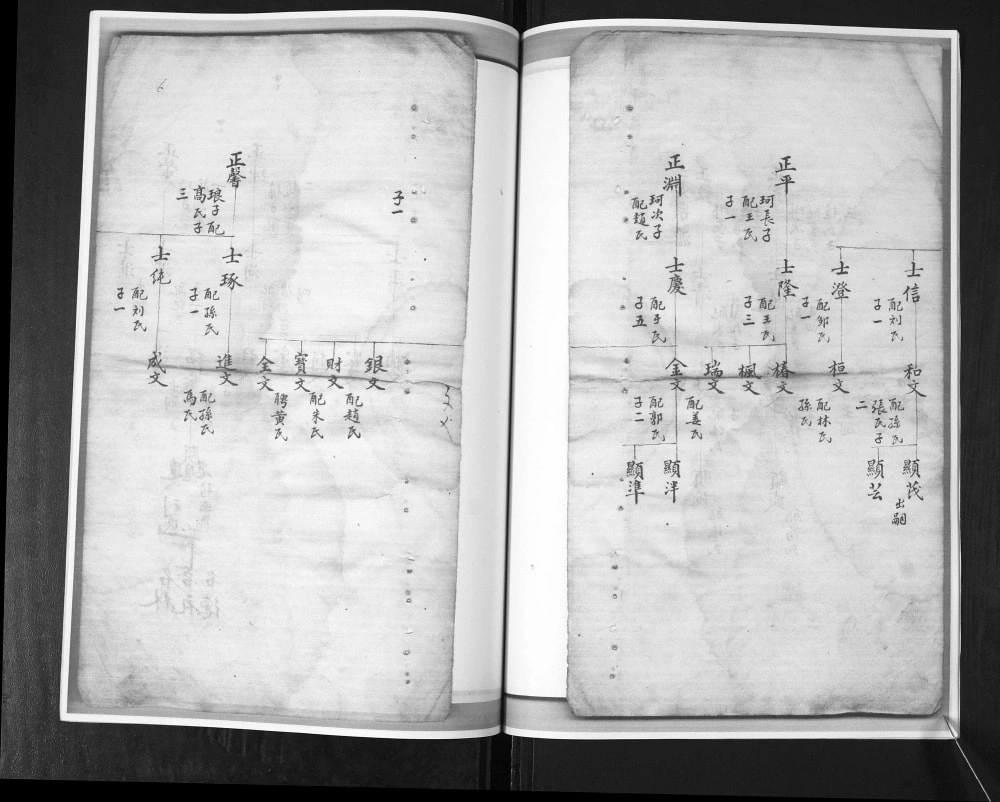 士信
配刘氏
子一
和文
配孫氏
張氏子
二
顯茂
出嗣
顯芸
士澄
配邹氏
子一
桓文
配林氏
孫氏
正平
珂長子
配王氏
子一
士隆
配王氏
子三
椿文
楓文
瑞文
正淵
珂次子
配趙氏
士慶
配于氏
子五
金文
配姜氏
配郭氏
子二
顯泮
顯準
子一
銀文
配趙氏
財文
配朱氏
寳文
聘黄氏
全文
正馨
琅子配
高氏子
三
士琢
配孫氏
子一
進文
配孫氏
馬氏
士純
配刘氏
子一
成文